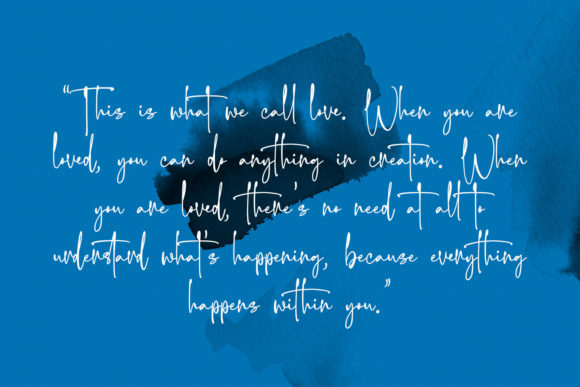 “This is what we call love. When you are
loved, you can do anything in creation. When
you are loved, there's no need at alt to
understand what's happening, because everything
happens within you.”